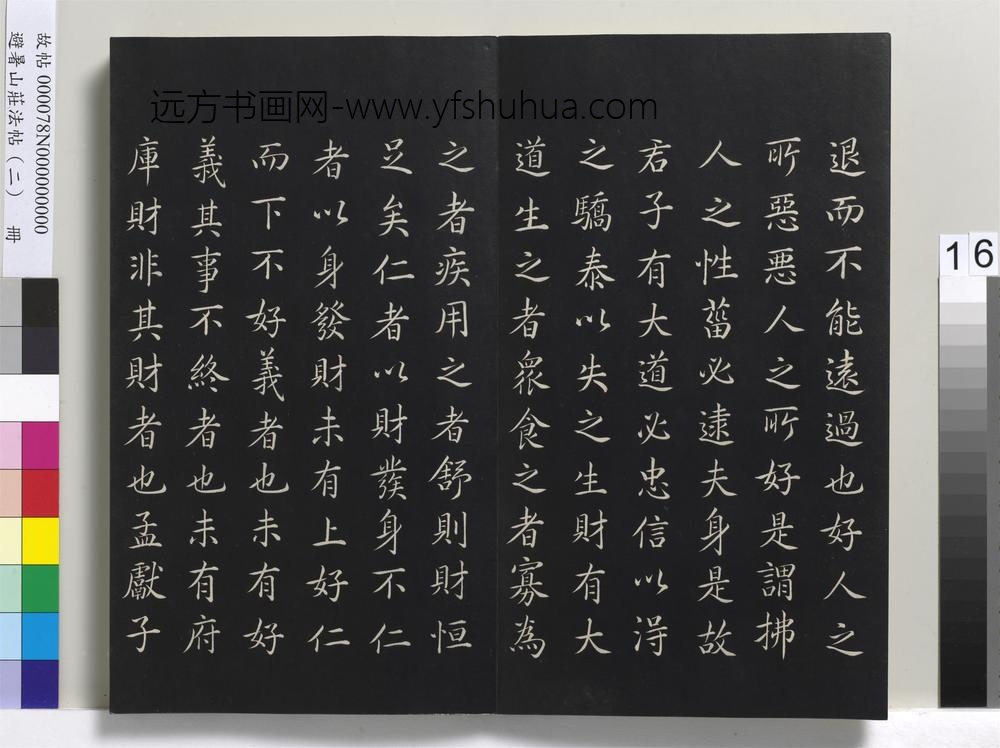 远方书画网-www.yfshuhua.com
退而不能遠過也好人之
所惡惡人之所好是謂拂
人之性菑必逮夫身是故
君子有大道必忠信以得
之驕泰以失之生財有大
道生之者眾食之者寡為
之者疾用之者舒則財恒
足矣仁者以財發身不仁
者以身發財未有上好仁
而下不好義者也未有好
義其事不終者也未有府
庫財非其財者也孟獻子
故帖 000078N000000000
避暑山莊法帖（二） 冊
16